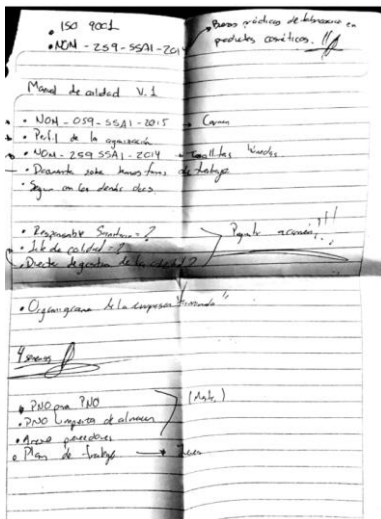 • ISO 9001
• NOM - 259 - SSA1 - 2014
Buenas prácticas de fabricación en
productos cosméticos. !!
Manual de calidad V. 1
• NOM - 059 - SSA1 - 2015 → Carmen
• Perfil de la organización
• NOM - 259 SSA1 - 2014 → Toallitas húmedas.
• Documento sobre
de trabajo
• Seguir con los demás docs.
• Responsable Sanitario = ?
• Jefe de calidad = ?
• Director de gestión de la calidad ?
Preguntar a Carmen !!!
• Organigrama de la empresa
4
• PNO para PNO
• PNO limpieza de almacen
• Anexo proveedores
• Plan de trabajo →